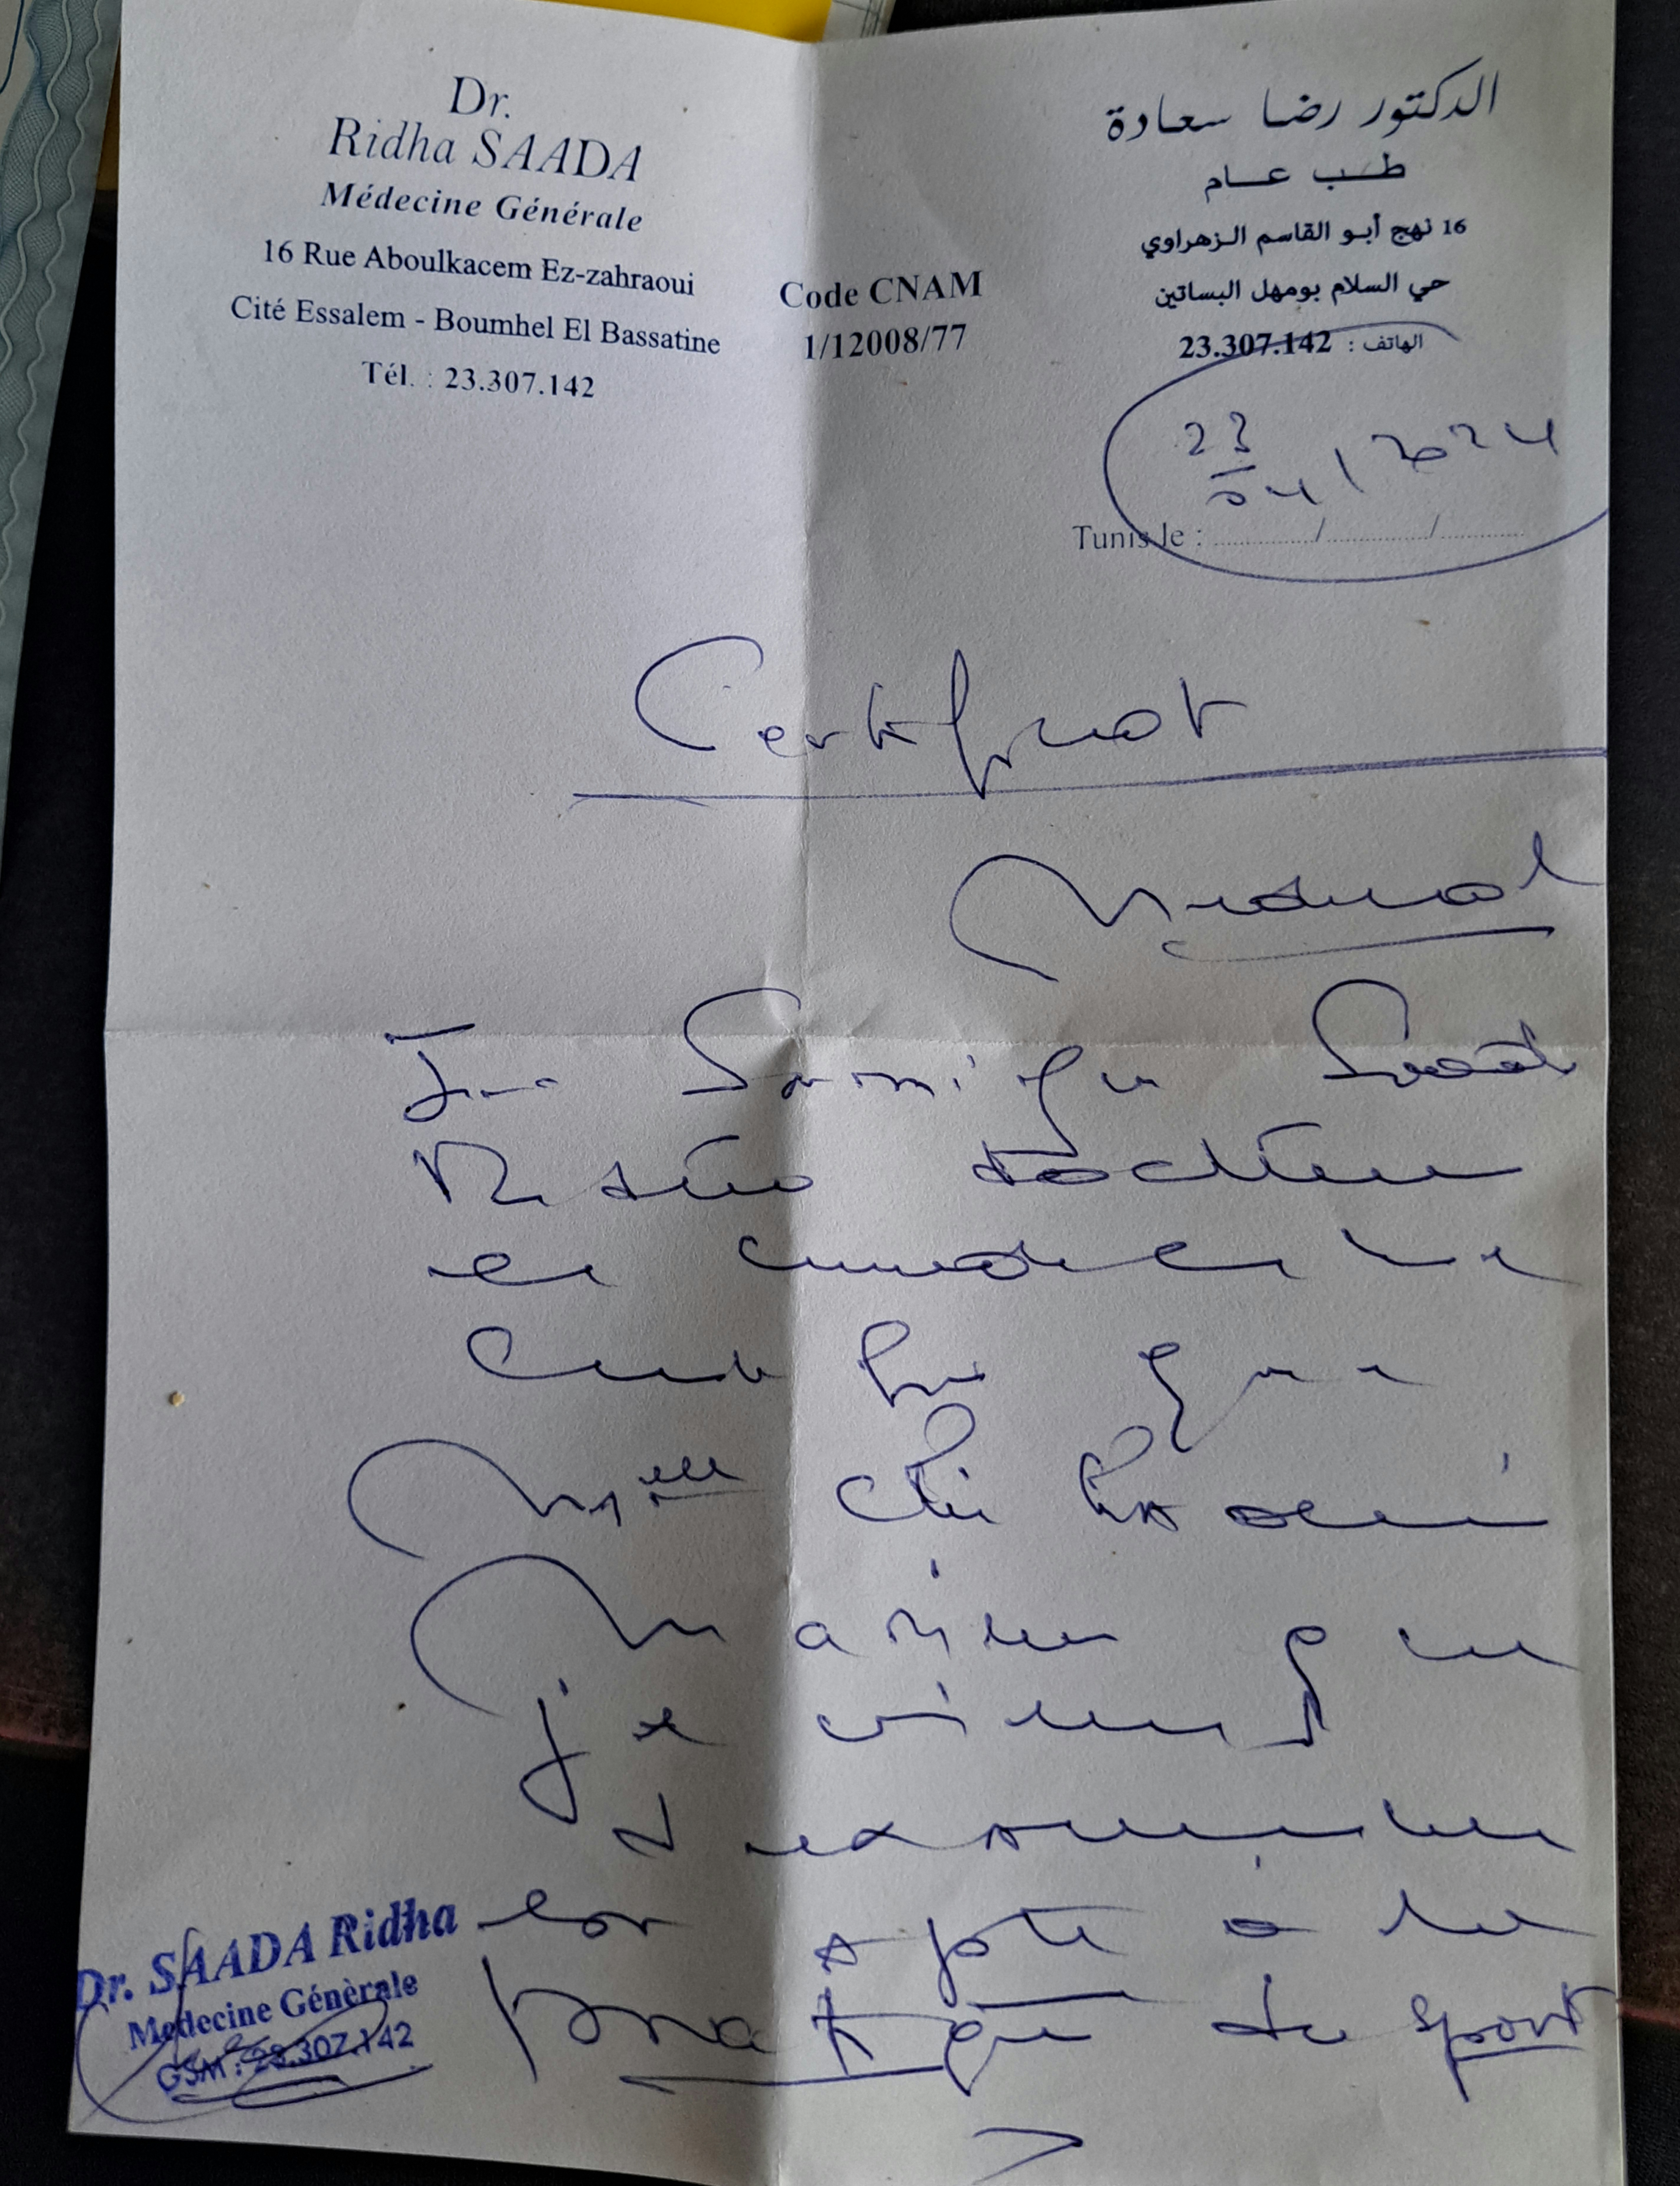 Dr.
Ridha SAADA
Médecine Générale
16 Rue Aboulkacem Ez-zahraoui
Cité Essalem - Boumhel El Bassatine
Tél. : 23.307.142
Code CNAM
1/12008/77
الدكتور رضا سعادة
طب عام
16 نهج أبو القاسم الزهراوي
حي السلام بومهل البساتين
الهاتف : 23.307.142
23/04/2024
Tunis le : ............/............/............
Certificat
Médical
Je Soussigné Saada
Ridha docteur
en médecine
certifie que
Melle
Mariem que
je viens
d'examiner
est apte à la
pratique du sport
Dr. SAADA Ridha
Medecine Génèrale
GSM : 23.307.142